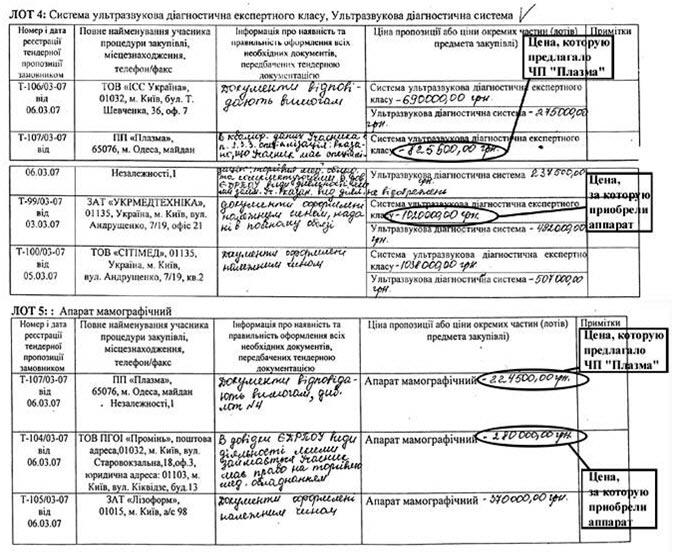 ЛОТ 4: Система ультразвукова діагностична експертного класу, Ультразвукова діагностична система
Номер і дата реєстрації тендерної пропозиції замовником
Повне найменування учасника процедури закупівлі, місцезнаходження, телефон/факс
Інформація про наявність та правильність оформлення всіх необхідних документів, передбачених тендерною документацією
Ціна пропозиції або ціни окремих частин (лотів) предмета закупівлі)
Примітки
Цена, которую
предлагало
ЧП "Плазма"
Т-106/03-07
від
06.03.07
ТОВ «ІСС Україна»,
01032, м. Київ, бул. Т.
Шевченка, 36, оф. 7
Документи відпові-
дають вимогам
Система ультразвукова діагностична експертного
класу -690000,00 грн.
Ультразвукова діагностична система -275000,00
грн.
Т-107/03-07
від
ПП «Плазма»,
65076, м. Одеса, майдан
В кваліф. даних Учасника в
п. 2.3.3. спеціалізація: вказа-
но, що Учасник має
Система ультразвукова діагностична експертного
класу -825500,00 грн.
06.03.07
Незалежності,1
Ультразвукова діагностична система 237500,00
грн.
Цена,
за которую
приобрели
аппарат
Т-99/03-07
від
03.03.07
ЗАТ «УКРМЕДТЕХНІКА»,
01135, Україна, м. Київ, вул.
Андрущенко, 7/19, офіс 21
документи оформлені
належним чином, нада
ні в повному обсязі
Система ультразвукова діагностична експертного
класу -1020000,00 грн.
Ультразвукова діагностична система -482000,00
грн.
Т-100/03-07
від
05.03.07
ТОВ «СІТІМЕД», 01135,
Україна, м. Київ,
вул. Андрущенко, 7/19, кв.2
Документи оформлені
належним чином
Система ультразвукова діагностична експертно
класу -1038000,00 грн.
Ультразвукова діагностична система -507000,00
грн.
ЛОТ 5: : Апарат мамографічний
Номер і дата реєстрації тендерної пропозиції замовником
Повне найменування учасника процедури закупівлі, місцезнаходження, телефон/факс
Інформація про наявність та правильність оформлення всіх необхідних документів, передбачених тендерною документацією
Ціна пропозиції або ціни окремих частин (лотів) предмета закупівлі)
Примітки
Цена, которую
предлагало
ЧП "Плазма"
Т-107/03-07
від
06.03.07
ПП «Плазма»,
65076, м. Одеса, майдан
Незалежності,1
Документи відповіда-
ють вимогам, див.
лот №4
Апарат мамографічний -224500,00 грн.
Т-104/03-07
від
06.03.07
ТОВ ПГОІ «Промінь», поштова
адреса,01032, м. Київ, вул.
Старовокзальна,18,оф.3,
юридична адреса: 01103, м.
Київ, вул. Кіквідзе, буд.13
В довідці ЄДРПОУ види
діяльності якими
займається Учасник
має право на торгівлю
мед. обладнанням
Апарат мамографічний -270000,00 грн.
Цена,
за которую
приобрели
аппарат
Т-105/03-07
від
06.03.07
ЗАТ «Лізоформ»,
01015, м. Київ, а/с 98
Документи оформлені
належним чином
Апарат мамографічний -370000,00 грн.